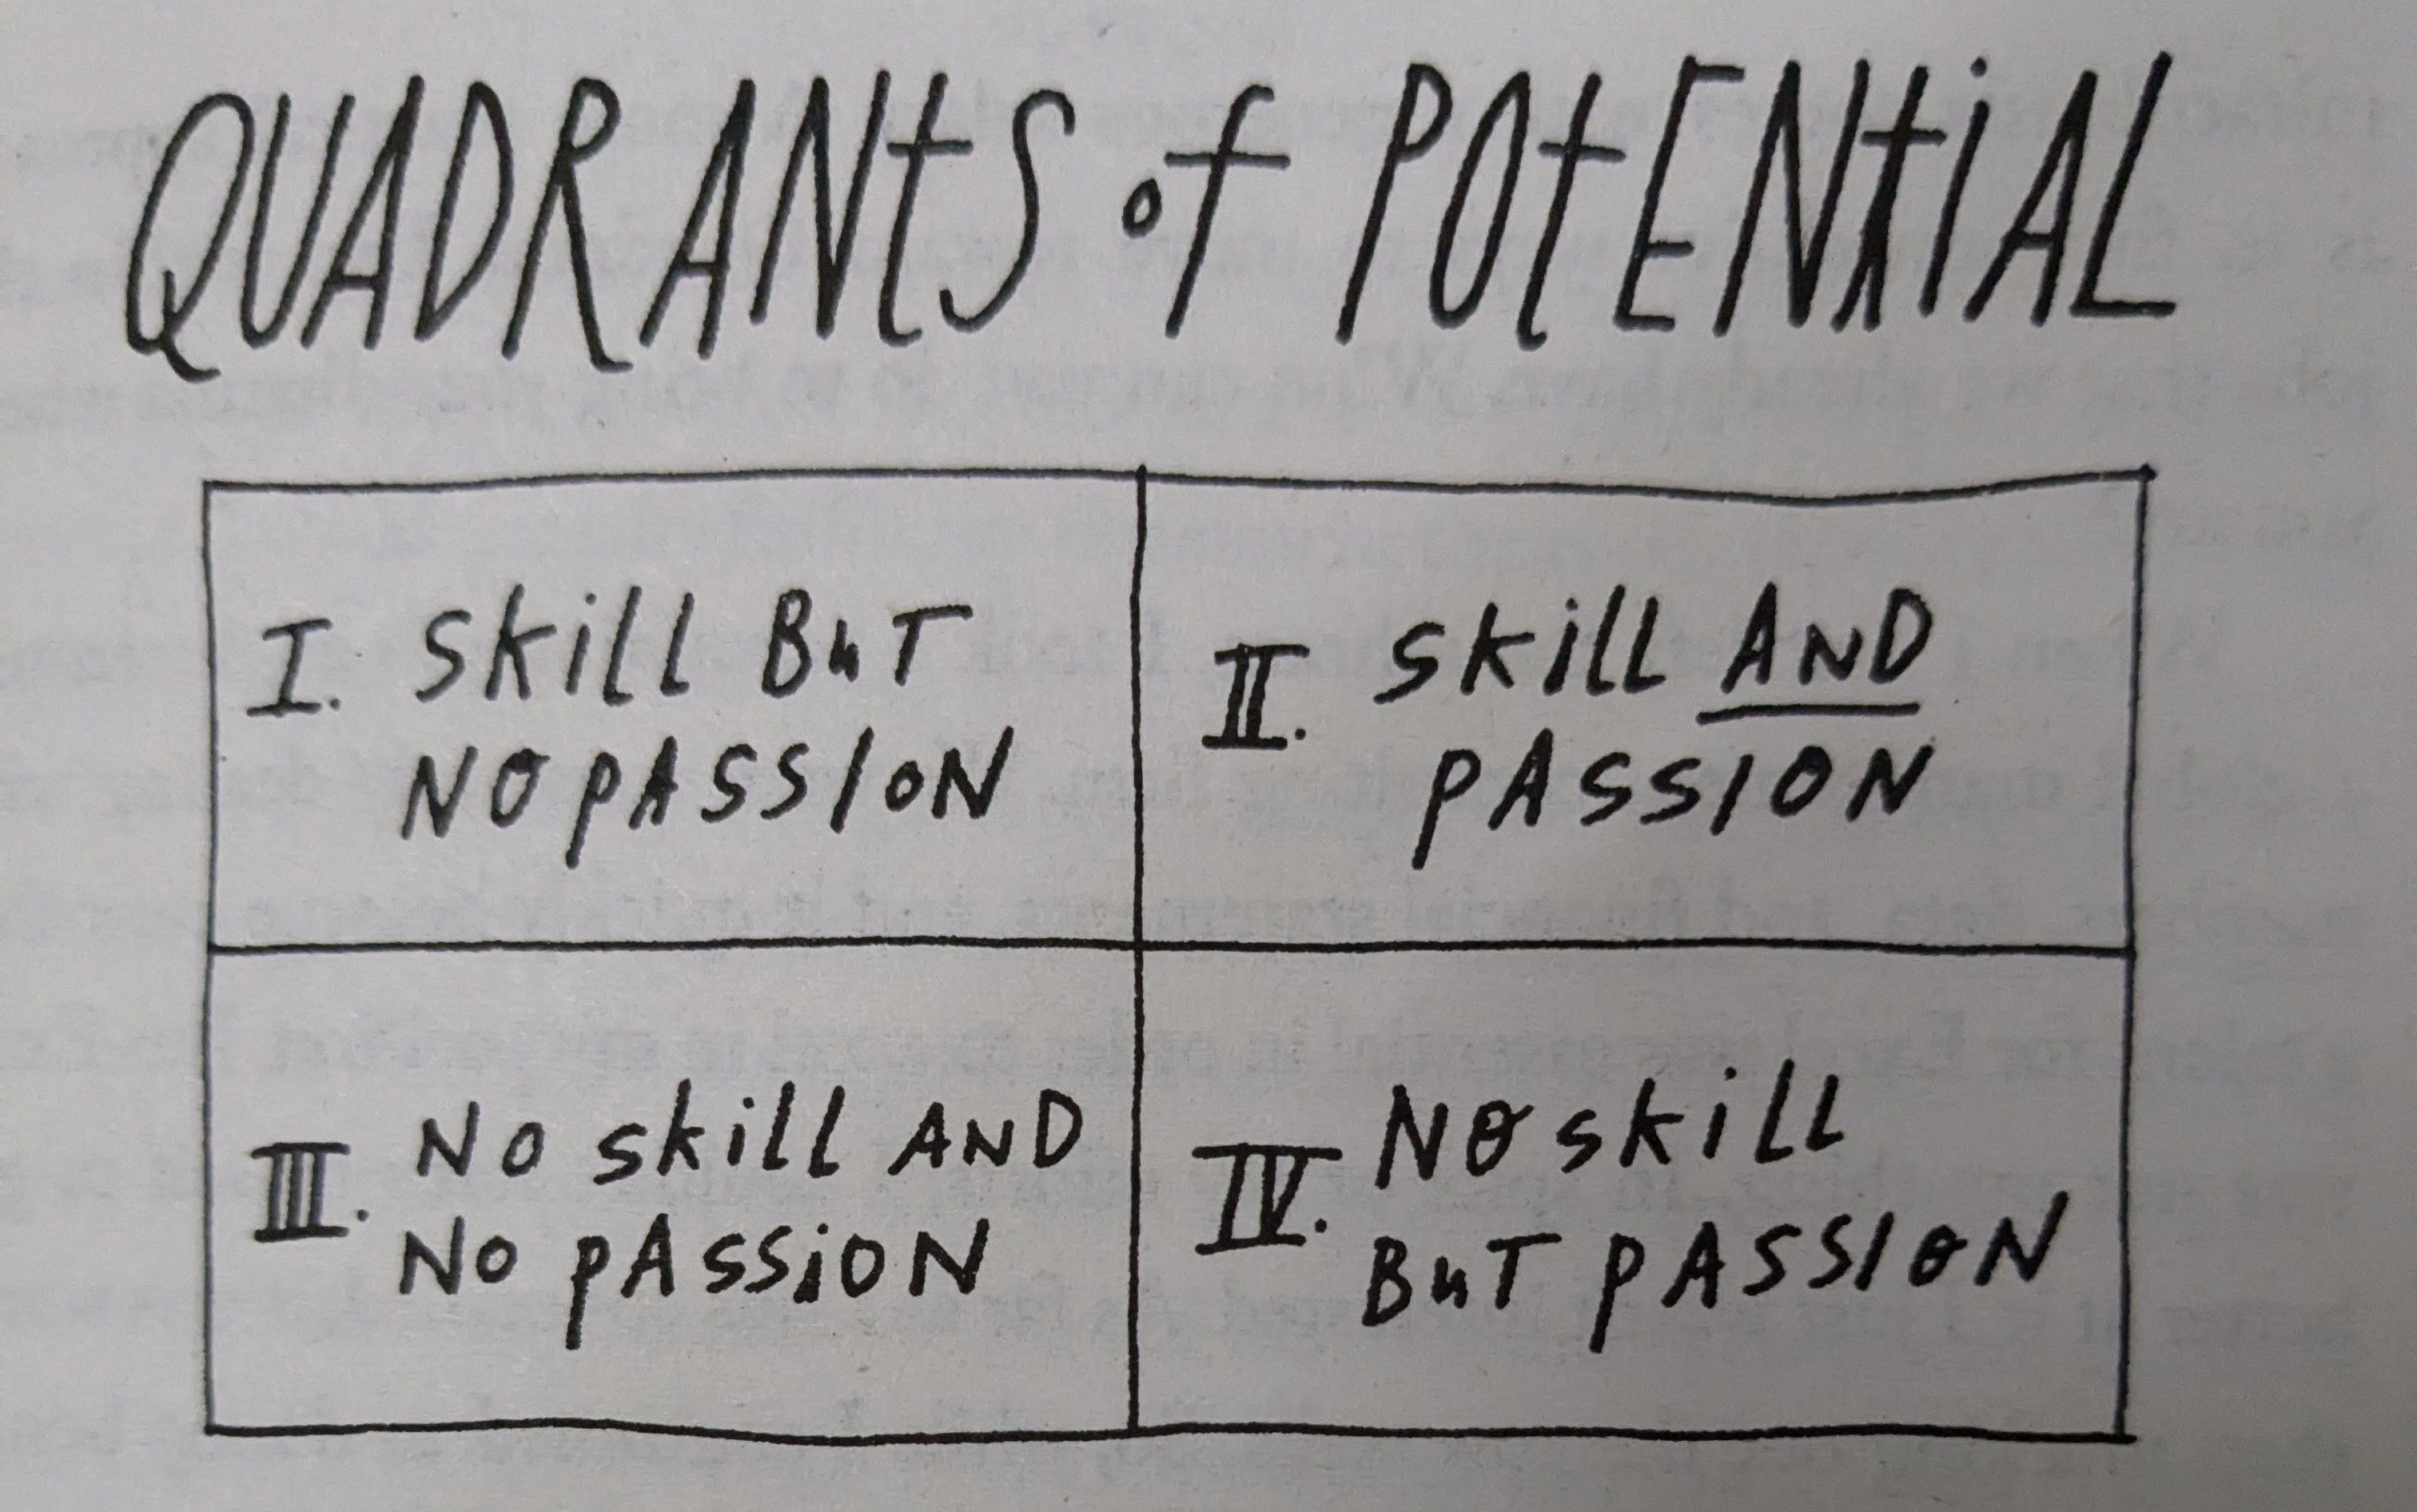 QUADRANtS of POtENtiAL
I. Skill BuT
NO PASSION
II. Skill AND
PASSION
III. NO Skill AND
NO PASSiON
IV. NO Skill
BuT PASSION